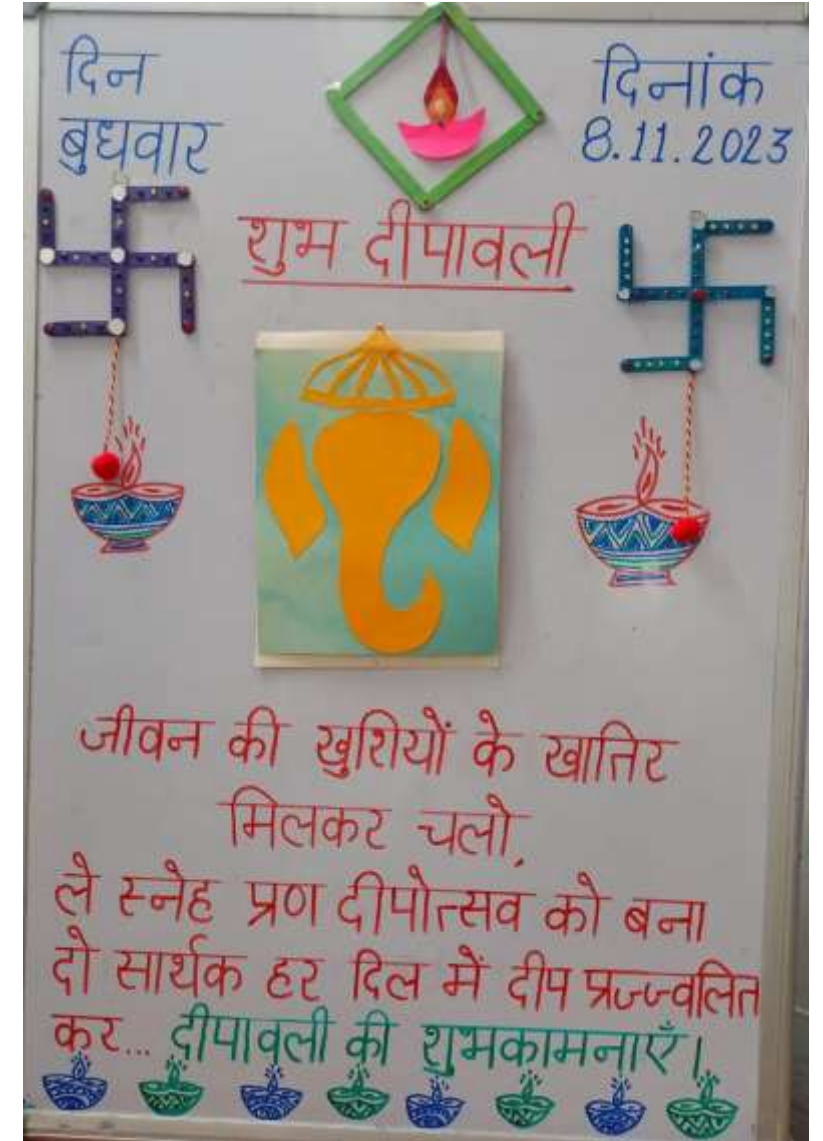 दिन
बुधवार
दिनांक
8.11.2023
शुभ दीपावली
जीवन की खुशियों के खातिर
मिलकर चलो,
ले स्नेह प्रण दीपोत्सव को बना
दो सार्थक हर दिल में दीप प्रज्ज्वलित
कर... दीपावली की शुभकामनाएँ।